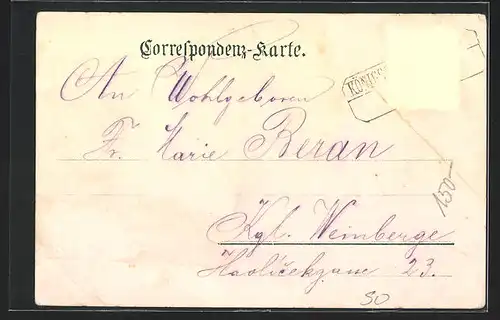 Correspondenz-Karte.
KÖNIGS
An Wohlgeboren
Fr. Marie Beran
Kgl. Weinberge
Havlíčekgasse 23.
150-
50